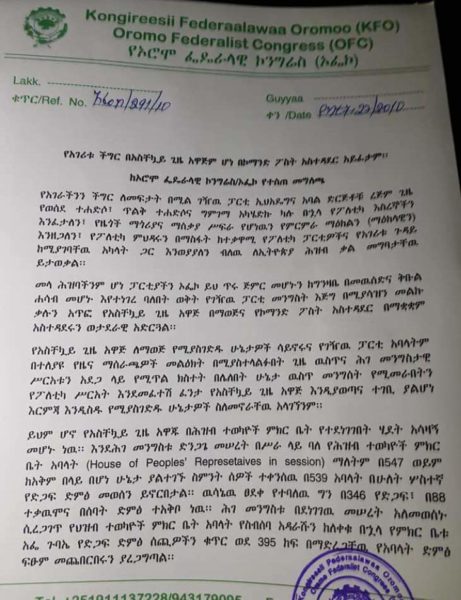 Kongireesii Federaalawaa Oromoo (KFO)
Oromo Federalist Congress (OFC)
የኦሮሞ ፌዴራላዊ ኮንግረስ (ኦፌኮ)
Lakk.
ቁጥር/Ref. No. /291/10
Guyyaa
ቀን /Date
የአገሪቱ ችግር በአስቸኳይ ጊዜ አዋጅም ሆነ በኮማንድ ፖስት አስተዳደር አይፈታም፡፡
ከኦሮሞ ፌዴራላዊ ኮንግረስ/ኦፌኮ የተሰጠ መግለጫ
የአገራችንን ችግር ለመፍታት በሚል ገዥዉ ፓርቲ ኢህአዴግና አባል ድርጅቶቹ ረጅም ጊዜ
የወሰደ ተሐድሶ፣ ጥልቅ ተሐድሶና ግምገማ አካሂድኩ ካሉ በኂላ የፖለቲካ እስረኞችን
እንፈታለን፣ የዜጎች ማጎሪያና ማሰቃያ ሥፍራ የሆነውን የምርምራ ማዕከልን (ማዕከላዊን)
እንዘጋለን፣ የፖለቲካ ምህዳሩን በማስፋት ከተቃዋሚ የፖለቲካ ፓርቲዎችና የአገሪቱ ጉዳይ
ከሚያገባቸዉ አካላት ጋር እንወያያለን ብለዉ ለኢትዮጵያ ሕዝብ ቃል መግባታቸዉ
ይታወቃል፡፡
መላ ሕዝባችንም ሆነ ፓርቲያችን ኦፌኮ ይህ ጥሩ ጅምር መሆኑን ከግንዛቤ በመዉሰድና ቅቡል
ሐሳብ መሆኑ እየተነገረ ባለበት ወቅት የገዥዉ ፓርቲ መንግስት እጅግ በሚያሳዝን መልኩ
ቃሉን አጥፎ የአስቸኳይ ጊዜ አዋጅ በማወጅና የኮማንድ ፖስት አስተዳደር በማቋቋም
አስተዳደሩን ወታደራዊ አድርጓል፡፡
የአስቸኳይ ጊዜ አዋጅ ለማወጅ የሚያስገድዱ ሁኔታዎች ሳይኖሩና የገዥዉ ፓርቲ አባላትም
በተለያዩ የዜና ማሰራጫዎች መልዕክት በሚያስተላልፉበት ጊዜ ዉስጥና ሕገ መንግስታዊ
ሥርአቱን አደጋ ላይ የሚጥል ክስተት በሌለበት ሁኔታ ዉስጥ መንግስት የሚመራበትን
የፖለቲካ ሥርአት እንደመፈተሽ ፈንታ የአስቸኳይ ጊዜ አዋጅ እንዲያወጣና ተገቢ ያልሆነ
እርምጃ እንዲወስዱ የሚያስገድዱ ሁኔታዎች ስለመኖራቸዉ አላገኘንም፡፡
ይህም ሆኖ የአስቸኳይ ጊዜ አዋጁ በሕዝብ ተወካዮች ምክር ቤት የተደነገገበት ሂደት አሳዛኝ
መሆኑ ነዉ፡፡ እንደሕገ መንግስቱ ድንጋጌ መሠረት በሥራ ላይ ባለ የሕዝብ ተወካዮች ምክር
ቤት አባላት (House of Peoples' Represetaives in session) ማለትም በ547 ወይም
ከአቅም በላይ በሆነ ሁኔታ ያልተገኙ ስምንት ሰዎች ተቀንሰዉ በ539 አባላት በሁለት ሦስተኛ
የድጋፍ ድምፅ መወሰን ይኖርበታል፡፡ ዉሳኔዉ ፀደቀ የተባለዉ ግን በ346 የድጋፍ፣ በ88
ተቃዉሞና በሰባት ድምፅ ተአቅቦ ነዉ፡፡ ሕገ መንግስቱ በደነገገዉ መሠረት አለመወሰኑ
ሲረጋገጥ የህዝብ ተወካዮች ምክር ቤት አባላት የስብሰባ አዳራሹን ከለቀቁ በኂላ የምክር ቤቱ
አፌ ጉባኤ የድጋፍ ድምፅ ሰጪዎችን ቁጥር ወደ 395 ከፍ በማድረጋቸዉ የአባላት ድምፅ
ፍፁም መጨበርበሩን ያረጋግጣል፡፡
Kongireesii Federaalawaa Oromoo
Oromo Federalist Congress (OFC)
Tel +251911137228/943179005